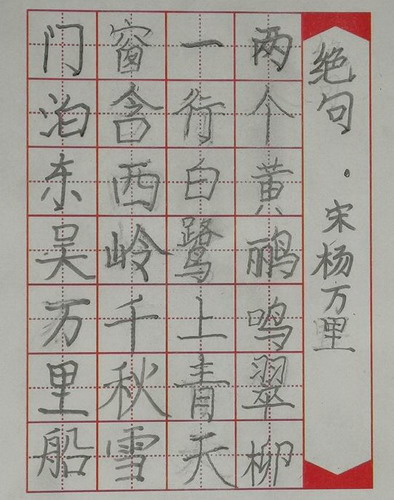 绝句·宋杨万里
两个黄鹂鸣翠柳
一行白鹭上青天
窗含西岭千秋雪
门泊东吴万里船